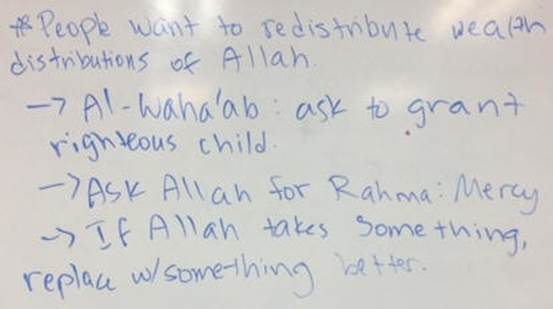 * People want to redistribute wealth
distributions of Allah.
→ Al-Waha'ab: ask to grant
righteous child.
→ Ask Allah for Rahma: Mercy
→ If Allah takes something,
replace w/something better.